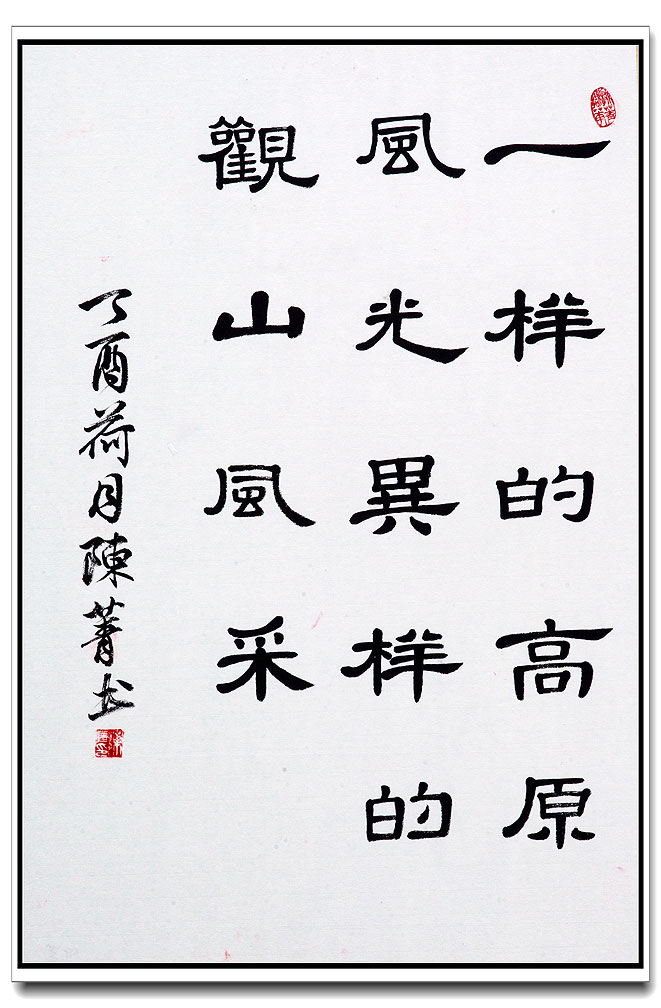 一样的高原
風光異样的
觀山風采
丁酉荷月陳菁书